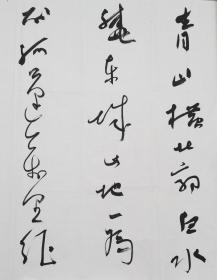 青山横北郭白水
绕东城此地一为
别孤蓬万里征